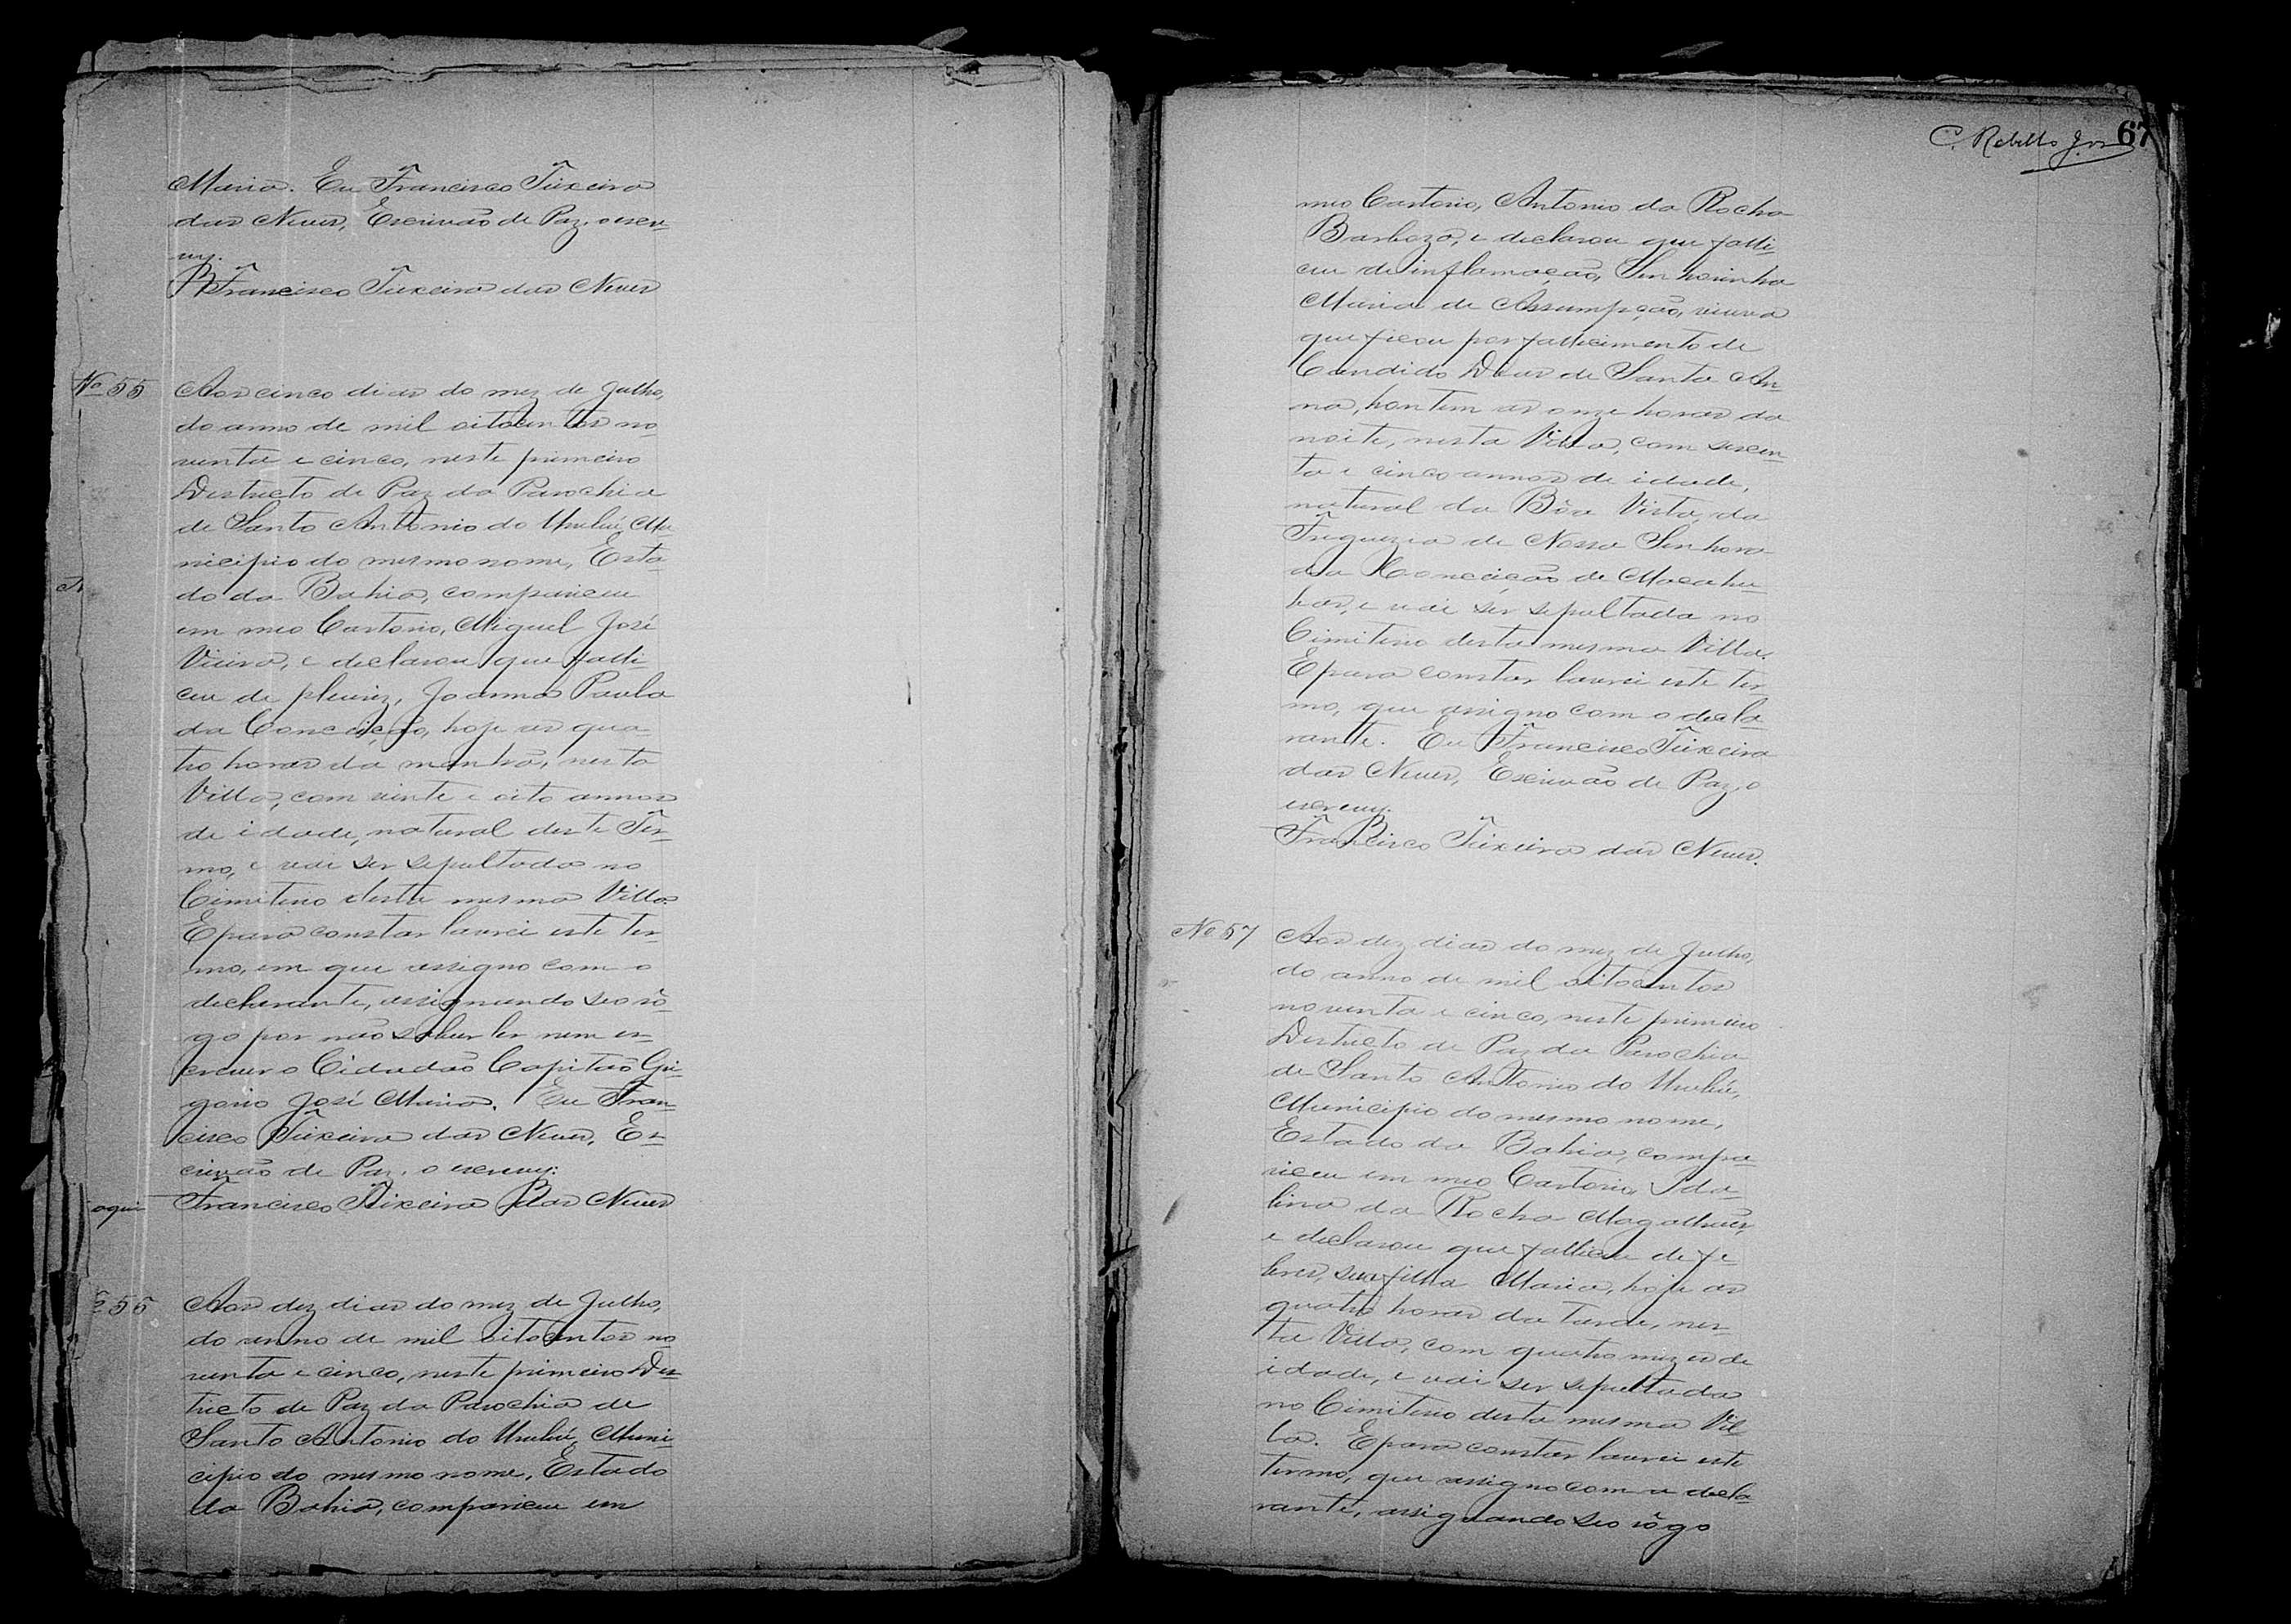 Maria. Eu Francisco Teixeira
das Neves, Escrivão de Paz, o escre
vy.
Francisco Teixeira das Neves
No 55
Aos cinco dias do mez de Julho,
do anno de mil oitocentos no
venta e cinco, neste primeiro
Destricto de Paz da Parochia
de Santo Antonio do Urubú, Mu
nicipio do mesmo nome, Esta
do da Bahia, compareceu
em meo Cartorio, Miguel José
Vieira, e declarou que falle
ceu de pleuriz, Joanna Paula
da Conceição, hoje as qua
tro horas da manhã, nesta
Villa, com vinte e oito annos
de idade, natural deste Ter
mo, e vai ser sepultada no
Cimiterio desta mesma Villa.
E para constar lavrei este ter
mo, em que assigno com o
declarante, assignando seo rô
go por não saber ler nem es
crever o Cidadão Capitão Gri
gorio José Maria. Eu Fran
cisco Teixeira das Neves, Es
crivão de Paz, o escrevy.
aqui
Francisco Teixeira das Neves
Aos dez dias do mez de Julho,
do anno de mil oitocentos no
venta e cinco, neste primeiro Des
tricto de Paz da Parochia de
Santo Antonio do Urubú, Muni
cipio do mesmo nome, Estado
da Bahia, compareceu em
C. Rebello Jor
67
meo Cartorio, Antonio da Rocha
Barboza, e declarou que falle
ceu de inflamação, Senhorinha
Maria de Assumpção, viuva
que ficou por fallecimento de
Candido Dias de Santa An
na, hontem as onze horas da
noite, nesta Villa, com sescen
ta e cinco annos de idade,
natural da Bôa Vista, da
Freguezia de Nossa Senhora
da Conceição de Macahu
bas, e vai ser sepultada no
Cimiterio desta mesma Villa.
E para constar lavrei este ter
mo, que assigno com o decla
rante. Eu Francisco Teixeira
das Neves, Escrivão de Paz, o
escrevy.
Francisco Teixeira das Neves.
No 57
Aos dez dias do mez de Julho,
do anno de mil oitocentos
noventa e cinco, neste primeiro
Destricto de Paz da Parochia
de Santo Antonio do Urubú,
Municipio do mesmo nome,
Estado da Bahia, compa
receu em meo Cartorio, Ida
lina da Rocha Magalhães,
e declarou que falleceu de fe
bres, sua filha Maria, hoje as
quatro horas da tarde, nes
ta Villa, com quatro mezes de
idade, e vai ser sepultada
no Cimiterio desta mesma Vil
la. E para constar lavrei este
termo, que assigno com a decla
rante, assignando seo rôgo